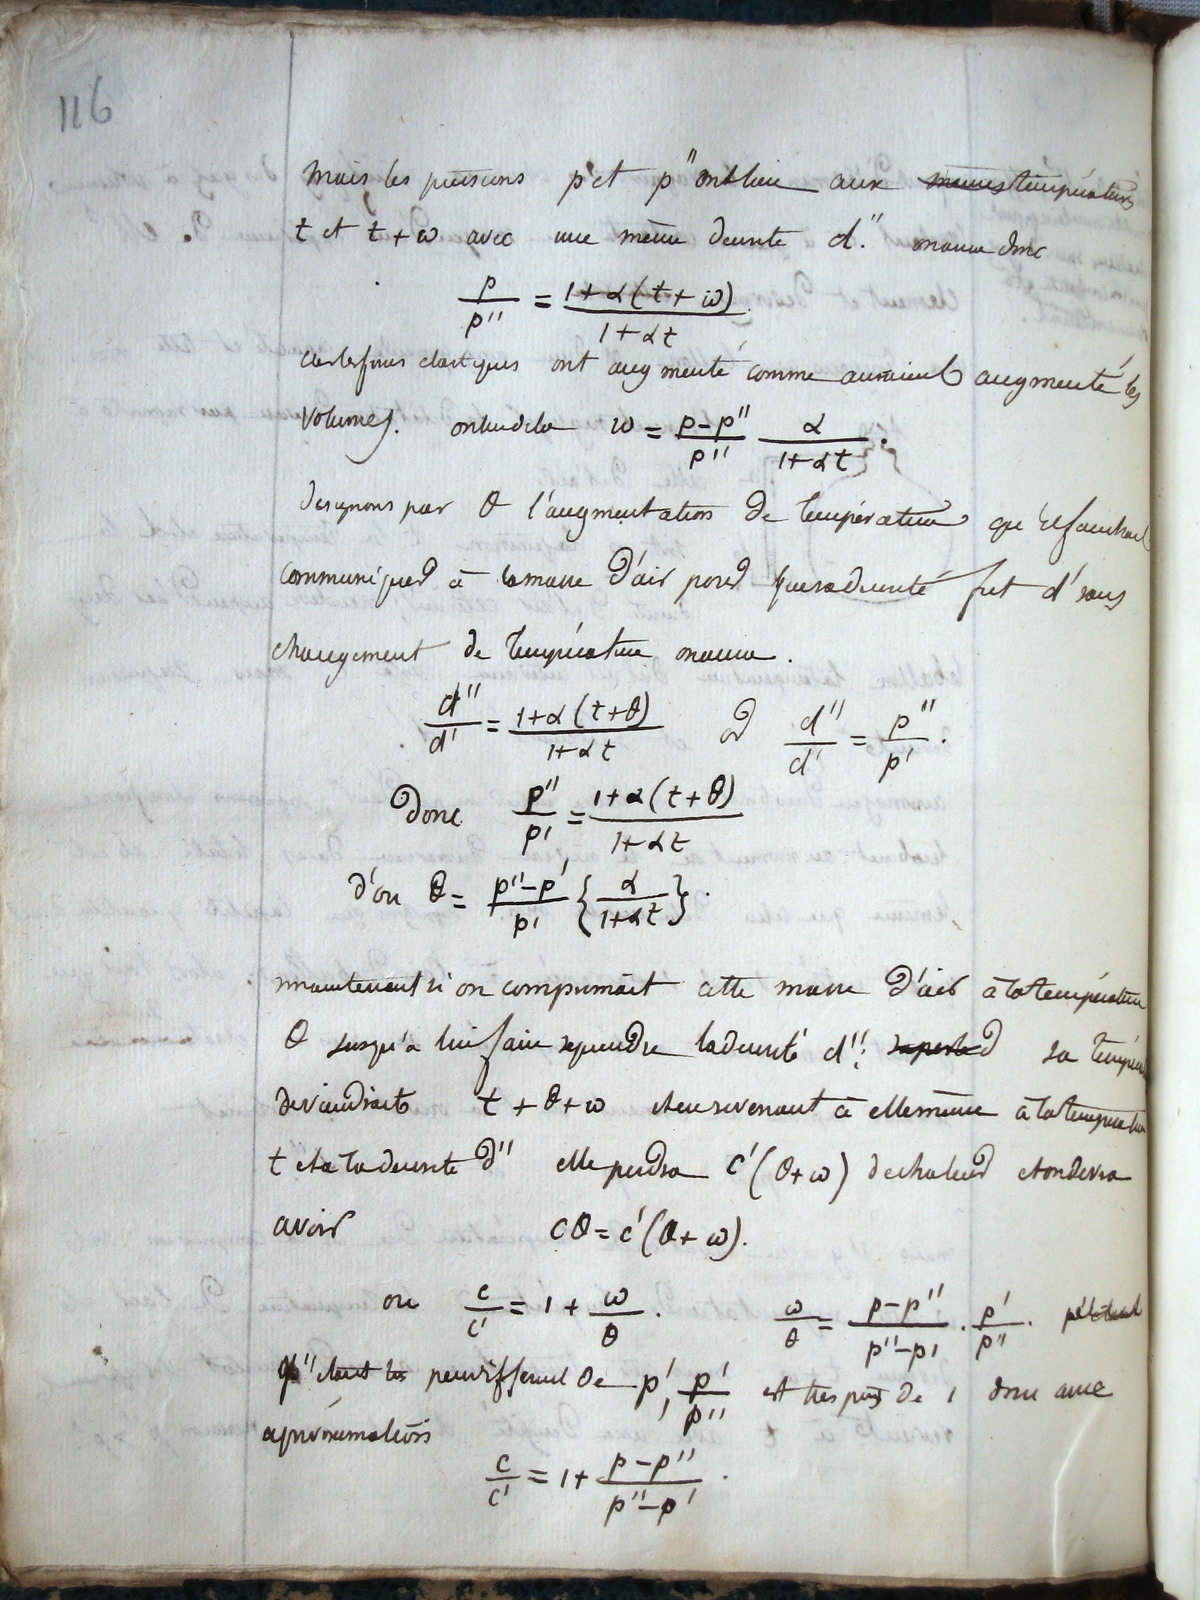 116
mais les pressions p et p'' ont lieu aux memes températures
t et t + ω avec une même densité d''. on aura donc
p/p'' = (1 + α(t + ω))/(1 + αt)
car les forces elastiques ont augmenté comme auraient augmenté les
volumes. on tire dela ω = (p - p'')/p'' α/(1 + αt).
designons par θ l'augmentation de température qu'il faudrait
communiquer à la masse d'air pour que sa densité fut d' sans
changement de température on aura.
d''/d' = (1 + α(t + θ))/(1 + αt) or d''/d' = p''/p'.
Donc p''/p' = (1 + α(t + θ))/(1 + αt)
d'ou θ = (p'' - p')/p' {α/(1 + αt)}.
maintenant si on comprimait cette masse d'air à la température
θ jusqu'a lui faire reprendre la densité d''; sa tempéra
deviendrait t + θ + ω et en revenant à elle même à la température
t et a la densité d'' elle perdra c'(θ + ω) de chaleur et on devra
avoir cθ = c'(θ + ω).
ou c/c' = 1 + ω/θ. ω/θ = (p - p'')/(p'' - p') . p'/p''. p' étant
p'' étant peu different de p', p'/p'' est tres près de 1 donc avec
approximation
c/c' = 1 + (p - p'')/(p'' - p').